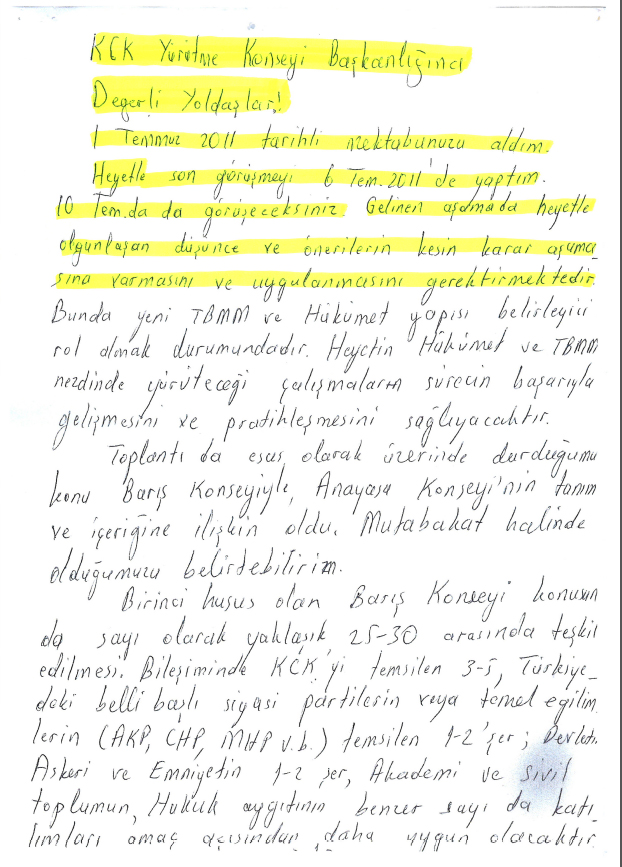 KCK Yürütme Konseyi Başkanlığına
Değerli Yoldaşlar!
1 Temmuz 2011 tarihli mektubunuzu aldım.
Heyetle son görüşmeyi 6 Tem. 2011'de yaptım.
10 Tem.da da görüşeceksiniz. Gelinen aşamada heyetle
olgunlaşan düşünce ve önerilerin kesin karar aşama
sına varmasını ve uygulanmasını gerektirmektedir.
Bunda yeni TBMM ve Hükümet yapısı belirleyici
rol almak durumundadır. Heyetin Hükümet ve TBMM
nezdinde yürüteceği çalışmaların sürecin başarıyla
gelişmesini ve pratikleşmesini sağlıyacaktır.
Toplantı da esas olarak üzerinde durduğumu
konu Barış Konseyiyle, Anayasa Konseyi'nin tanım
ve içeriğine ilişkin oldu. Mutabakat halinde
olduğumuzu belirtebilirim.
Birinci husus olan Barış Konseyi konusun
da sayı olarak yaklaşık 25-30 arasında teşkil
edilmesi. Bileşiminde KCK'yi temsilen 3-5, Türkiye_
deki belli başlı siyasi partilerin veya temel eğilim
lerin (AKP, CHP, MHP v.b.) temsilen 1-2'şer; Devletin
Askeri ve Emniyetin 1-2 şer, Akademi ve sivil
toplumun, Hukuk aygıtının benzer sayı da katı
lımları amaç açısından daha uygun olacaktır.